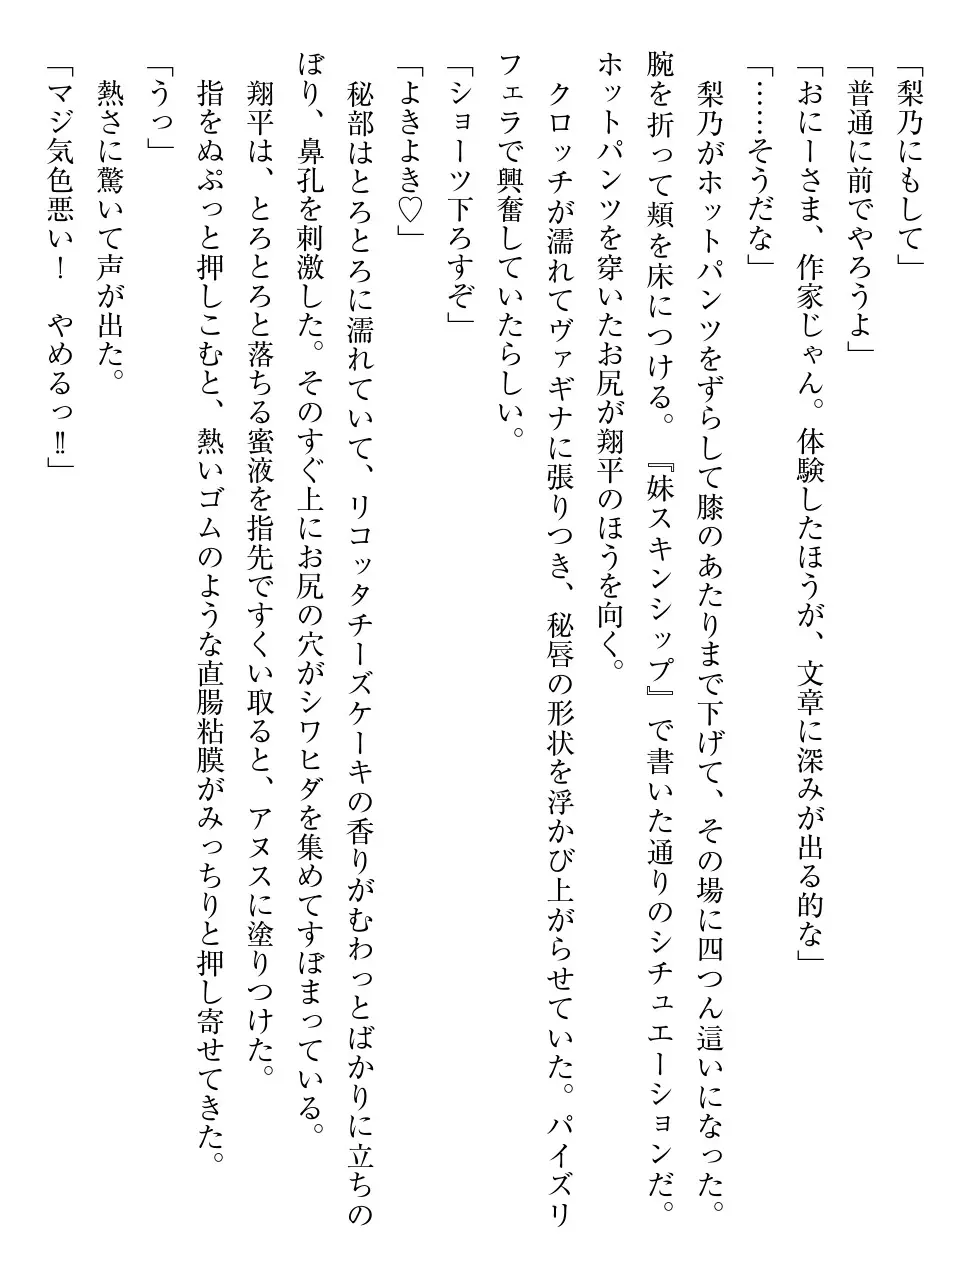 「梨乃にもして」
「普通に前でやろうよ」
「おにーさま、作家じゃん。体験したほうが、文章に深みが出る的な」
「……そうだな」
梨乃がホットパンツをずらして膝のあたりまで下げて、その場に四つん這いになった。
腕を折って頬を床につける。『妹スキンシップ』で書いた通りのシチュエーションだ。
ホットパンツを穿いたお尻が翔平のほうを向く。
クロッチが濡れてヴァギナに張りつき、秘唇の形状を浮かび上がらせていた。パイズリ
フェラで興奮していたらしい。
「ショーツ下ろすぞ」
「よきよき♡」
秘部はとろとろに濡れていて、リコッタチーズケーキの香りがむわっとばかりに立ちの
ぼり、鼻孔を刺激した。そのすぐ上にお尻の穴がシワヒダを集めてすぼまっている。
翔平は、とろとろと落ちる蜜液を指先ですくい取ると、アヌスに塗りつけた。
指をぬぷっと押しこむと、熱いゴムのような直腸粘膜がみっちりと押し寄せてきた。
「うっ」
熱さに驚いて声が出た。
「マジ気色悪い！　やめるっ‼」